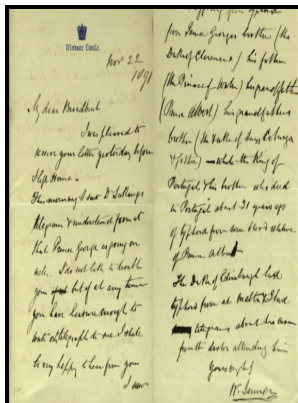 Windsor Castle.
Nov 22
1891
My dear Broadbent
I was pleased to
receive your letter yesterday before
I left Home —
This morning I saw Dr Laking's
telegram & understand from it
that Prince George is going on
well. I do not like to trouble
you but if at any time
you have leisure enough to
write or telegraph to me I shall
be very happy to hear from you
I saw
suffering from typhoid
fever Prince George's brother (the
Duke of Clarence) his father
(the Prince of Wales) his grandfather
(Prince Albert) his grandfather's
brother (the Duke of Saxe Coburg
& Gotha) — while the King of
Portugal & his brother who died
in Portugal about 31 years ago
of typhoid fever were blood relations
of Prince Albert
The Duke of Edinburgh had
typhoid fever at Malta & I had
telegrams about his case
from the doctor attending him
Yours
W. Jenner